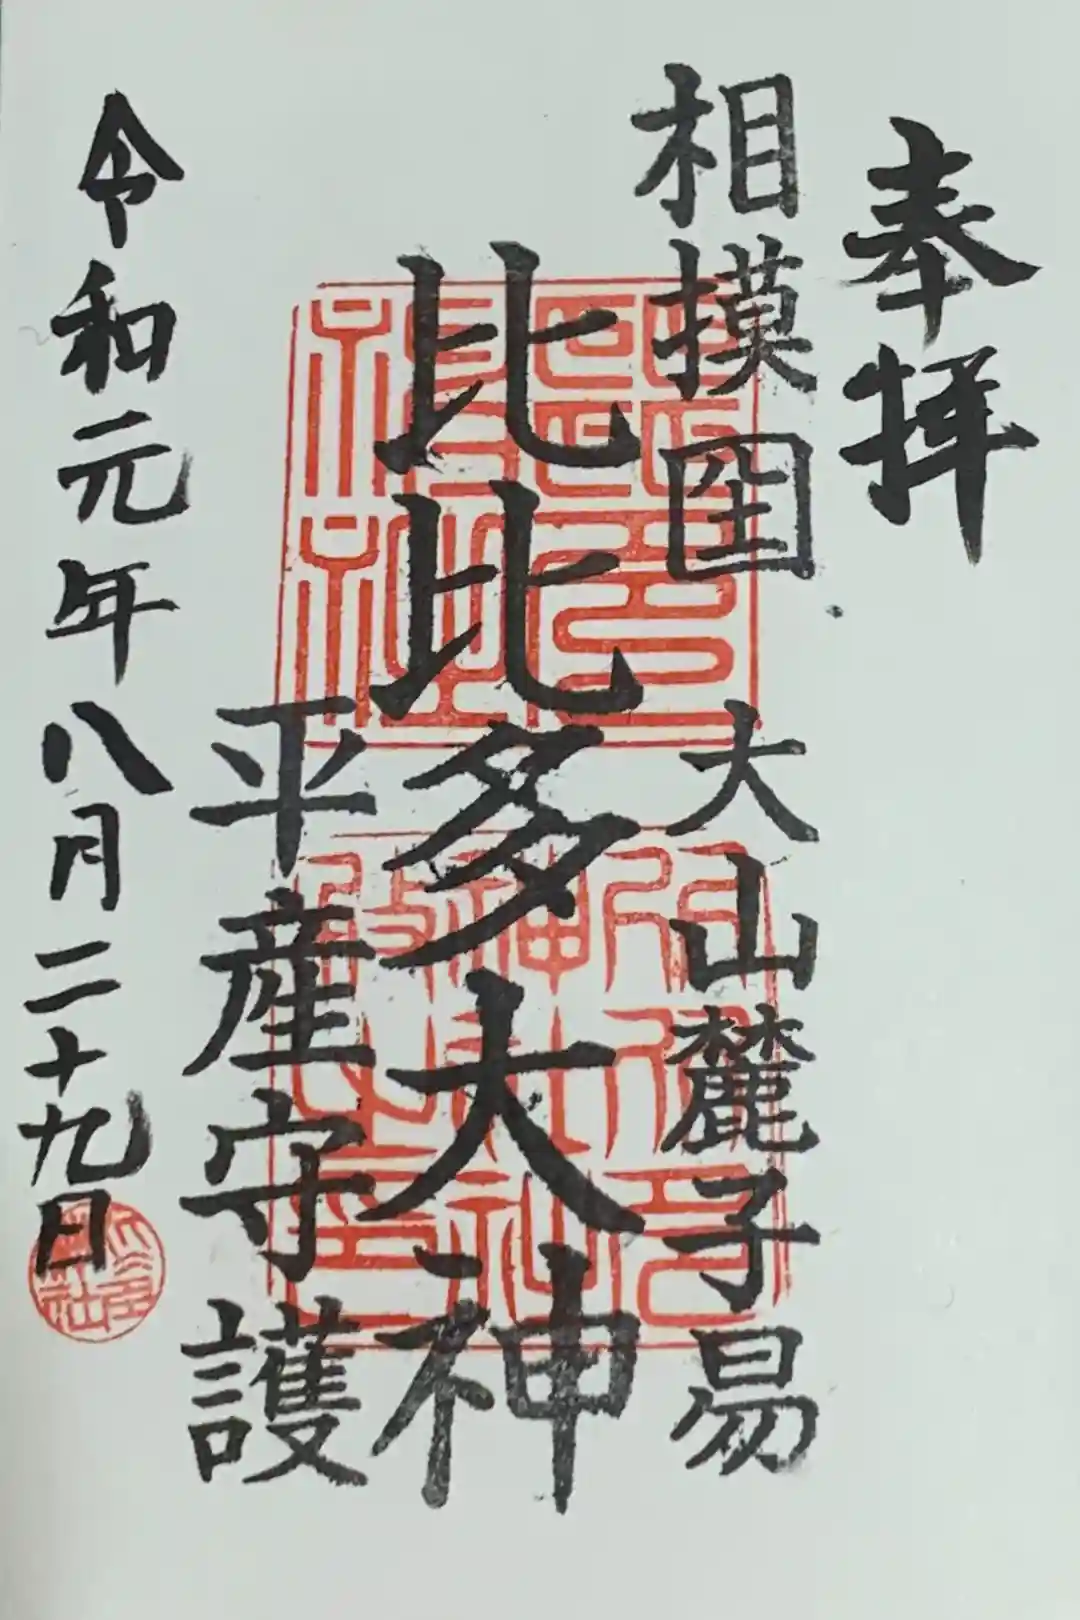 奉拝
相摸国 大山麓子易
比比多大神
平産守護
令和元年八月二十九日